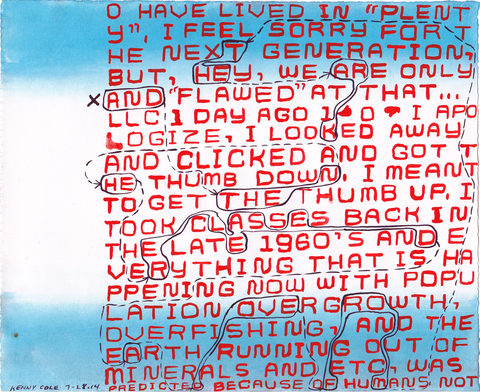 O HAVE LIVED IN "PLENT
Y", I FEEL SORRY FOR T
HE NEXT GENERATION,
BUT, HEY, WE ARE ONLY
X AND "FLAWED" AT THAT...
LLC 1 DAY AGO 1 0 I APO
LOGIZE, I LOOKED AWAY
AND CLICKED AND GOT T
HE THUMB DOWN. I MEANT
TO GET THE THUMB UP. I
TOOK CLASSES BACK IN
THE LATE 1960'S AND E
VERYTHING THAT IS HA
PPENING NOW WITH POPU
LATION OVERGROWTH,
OVERFISHING, AND THE
EARTH RUNNING OUT OF
MINERALS AND ETC, WAS
PREDICTED BECAUSE OF HUMANS NOT
KENNY COLE 7-28.14